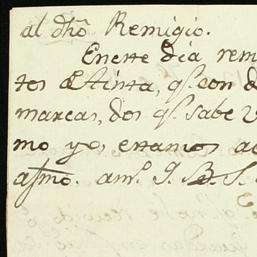 al dho Remigio.
En este dia rem
tos de tinta, qe. con d
marcas, dos qe. sabe V
mo yo, estamos ac
afmo. amo. Q. B. S.